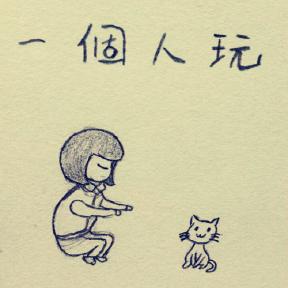 一個人玩